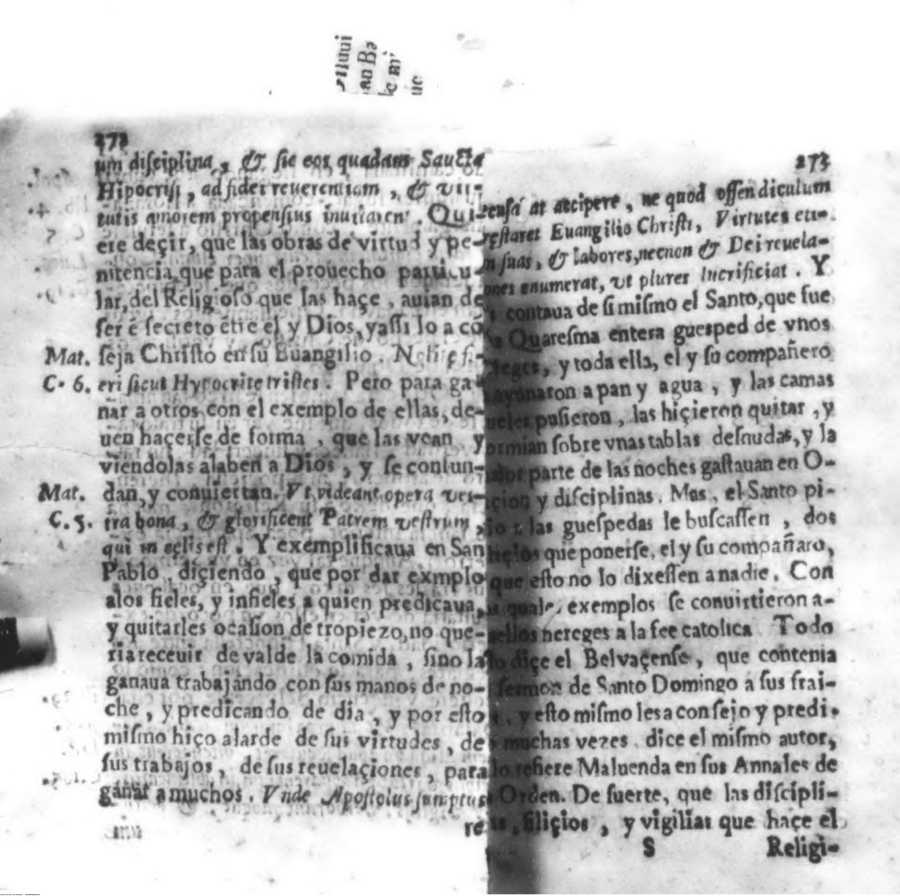 272
um disciplina, & sic eos quadam Sancta
Hipocrisi, ad fidei reuerentiam, & vir-
tutis amorem propensius inuitaren. Qui-
ere deçir, que las obras de virtud y pe-
nitencia que para el prouecho particu-
lar, del Religioso que las haçe, auian de
ser ē secreto ētre el y Dios, y assi lo a cō
Mat. seja Christo en su Euangilio. Nolite fi-
C. 6. eri sicut Hypocrite tristes. Pero para ga-
nar a otros con el exemplo de ellas, de-
uen haçerse de forma, que las vean, y
viendolas alaben a Dios, y se confun-
Mat. dan, y conuiertan. Vt videant opera ves-
C. 5. tra bona, & glorificent Patrem vestrum
qui in cęlis est. Y exemplificaua en San
Pablo, diçiendo, que por dar exmplo
a los fieles, y infieles a quien predicaua,
y quitarles ocasion de tropiezo, no que-
ria receuir de valde la comida, sino la
ganaua trabajando con sus manos de no-
che, y predicando de dia, y por esto
mismo hiço alarde de sus virtudes, de
sus trabajos, de sus reuelaçiones, para
ganar a muchos. Vnde Apostolus sumptus
re
273
ensa at accipere, ne quod offendiculum
restaret Euangilio Christi, Virtutes eti-
n suas, & labores, necnon & Dei reuela-
ones enumerat, vt plures lucrificiat. Y
contaua de si mismo el Santo, que fue
Quaresma entera guesped de vnos
reges, y toda ella, el y su compañero
ayunaron a pan y agua, y las camas
ueles pusieron, las hiçieron quitar, y
ormian sobre vnas tablas desnudas, y la
parte de las noches gastauan en O-
cion y disciplinas. Mas, el Santo pi-
dio a las guespedas le buscassen, dos
que ponerse, el y su compañaro,
que esto no lo dixessen a nadie. Con
quale exemplos se conuirtieron a-
ellos hereges a la fee catolica. Todo
diçe el Belvaçense, que contenia
sermon de Santo Domingo a sus frai-
y esto mismo les aconsejo y predi-
muchas vezes. dice el mismo autor,
lo refiere Maluenda en sus Annales de
Orden. De suerte, que las discipli-
siliçios, y vigilias que haçe el
S Religi-